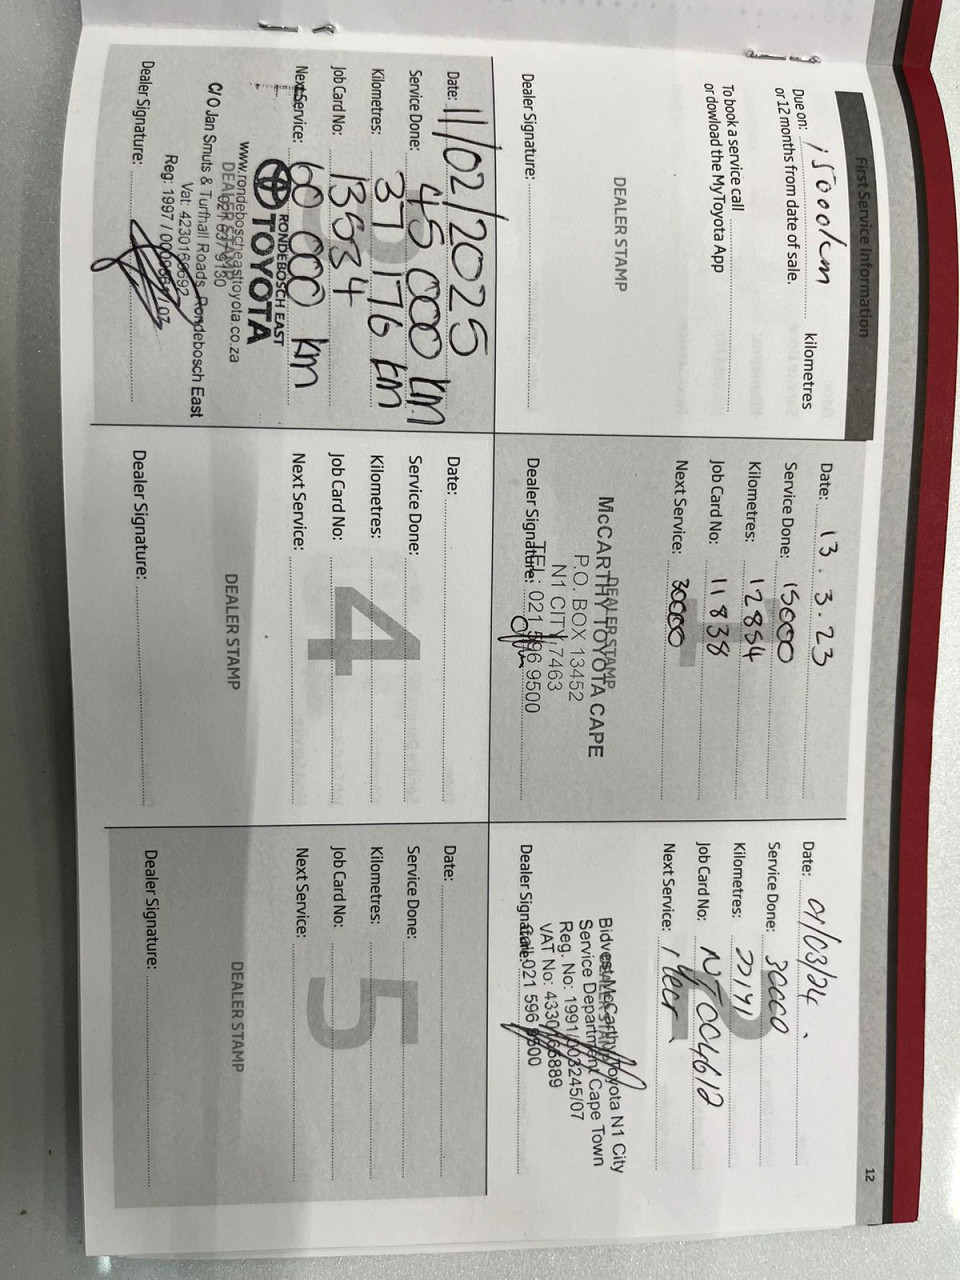 12
First Service Information
Due on: 15000km kilometres
or 12 months from date of sale.
To book a service call
or dowload the MyToyota App
DEALER STAMP
Dealer Signature:
Date: 13.3.23
Service Done: 15000
Kilometres: 12854
Job Card No: 11838
Next Service: 30000
1
DEALER STAMP
McCARTHY TOYOTA CAPE
P.O. BOX 13452
N1 CITY, 7463
TEL: 021 596 9500
Dealer Signature:
Date: 01/03/24
Service Done: 30000
Kilometres: 22141
Job Card No: NTC04612
Next Service: 1 Year
2
Bidvest McCarthy Toyota N1 City
Service Department Cape Town
Reg. No: 1991/003245/07
VAT No: 4330165889
Call 021 596 9500
Dealer Signature:
Date: 11/02/2025
Service Done: 45 000 km
Kilometres: 37 176 km
Job Card No: 13534
Next Service: 60 000 km
RONDEBOSCH EAST
TOYOTA
www.rondeboscheasttoyota.co.za
DEALER STAMP
C/O Jan Smuts & Turfhall Roads, Rondebosch East
Reg: 1997 /
Dealer Signature:
Date:
Service Done:
Kilometres:
Job Card No:
Next Service:
4
DEALER STAMP
Dealer Signature:
Date:
Service Done:
Kilometres:
Job Card No:
Next Service:
5
DEALER STAMP
Dealer Signature: